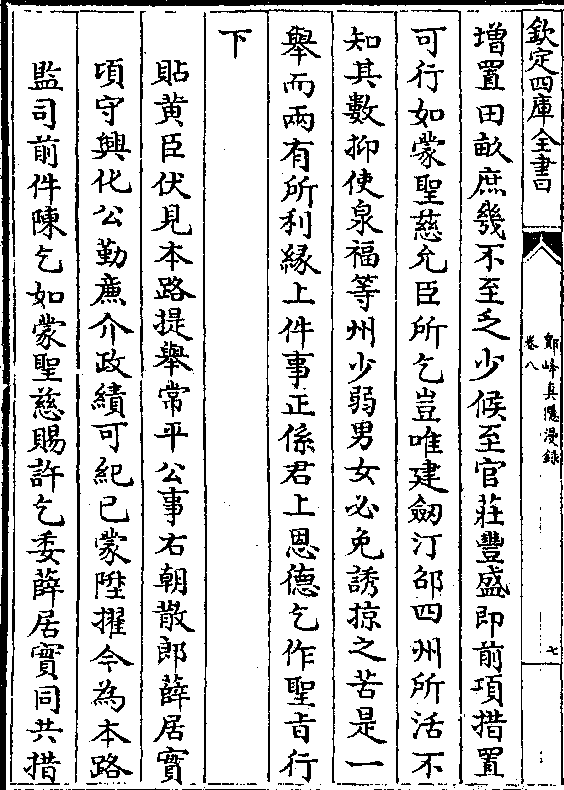 欽定四庫全書
鄮峰真隱漫錄
卷八
七
增置田畝庶幾不至乏少候至官莊豐盛即前項措置
可行如蒙聖慈允臣所乞豈唯建劒汀邵四州所活不
知其數抑使泉福等州少弱男女必免誘掠之苦是一
舉而兩有所利緣上件事正係君上恩德乞作聖旨行
下
貼黄臣伏見本路提舉常平公事右朝散郎薛居實
項守興化公勤亷介政績可紀已蒙陞擢今為本路
監司前件陳乞如蒙聖慈賜許乞委薛居實同共措